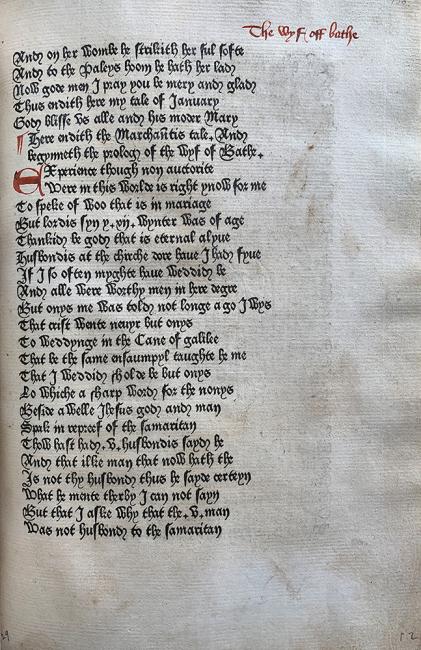 The wyf off bathe
And on her wombe he strikith her ful softe
And to the Paleys hoom he hath her lad
Now gode men I pray you be mery and glad
Thus endith here my tale of January
God blisse vs alle and his moder Mary
Here endith the Marchantis tale. And
begynneth the prolog of the wyf of Bathe.
EXperience though non auctorite
Were in this worlde is right ynow for me
To speke of woo that is in mariage
But lordis syn y. xij. wynter was of age
Thankid be god that is eternal alyue
Husbondis at the chirche dore haue I had fyue
If I so often myghte haue weddid be
And alle were worthy men in here degre
But onys me was told not longe a go I wys
That crist wente neuyr but onys
To weddynge in the Cane of galilee
That be the same ensaumpyl taughte he me
That I weddid sholde be but onys
Lo whiche a sharp word for the nonys
Beside a welle Ihesus god and man
Spak in repreef of the samaritan
Thow hast had. v. husbondis sayd he
And that ilke man that now hath the
Is not thy husbond thus he sayde certeyn
What he mente therby I can not sayn
But that I aske why that the. v. man
Was not husbond to the samaritan